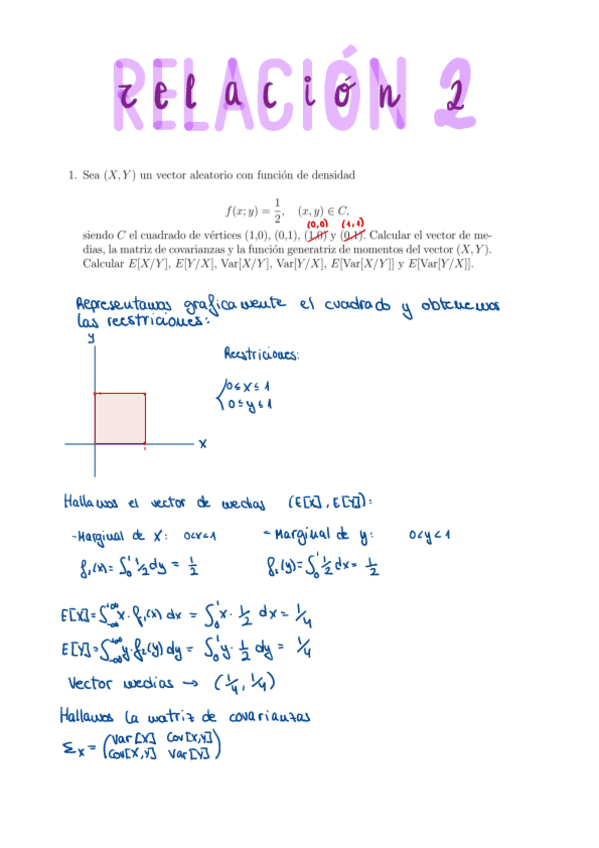 RELACIÓN 2
relación 2
1. Sea (X, Y) un vector aleatorio con función de densidad
f(x; y) = 1/2, (x, y) ∈ C,
(0,0) (1,1)
siendo C el cuadrado de vértices (1,0), (0,1), (1,0) y (0,1). Calcular el vector de me-
dias, la matriz de covarianzas y la función generatriz de momentos del vector (X, Y).
Calcular E[X/Y], E[Y/X], Var[X/Y], Var[Y/X], E[Var[X/Y]] y E[Var[Y/X]].
Representamos graficamente el cuadrado y obtenemos
las recstriciones:
y
Recstriciones:
0≤x≤1
0≤y≤1
x
1
Hallamos el vector de medias (E[X], E[Y]):
-Marginal de x: 0<x<1
- Marginal de y: 0<y<1
f₁(x)= ∫₀¹ 1/2 dy = 1/2
f₂(y)= ∫₀¹ 1/2 dx = 1/2
E[X]= ∫₋∞⁺∞ x· f₁(x) dx = ∫₀¹ x · 1/2 dx = 1/4
E[Y]= ∫₋∞⁺∞ y· f₂(y) dy = ∫₀¹ y· 1/2 dy = 1/4
Vector medias → (1/4, 1/4)
Hallamos la matriz de covarianzas
Σx = (Var[X] Cov[X,Y]
Cov[X,Y] Var[Y])